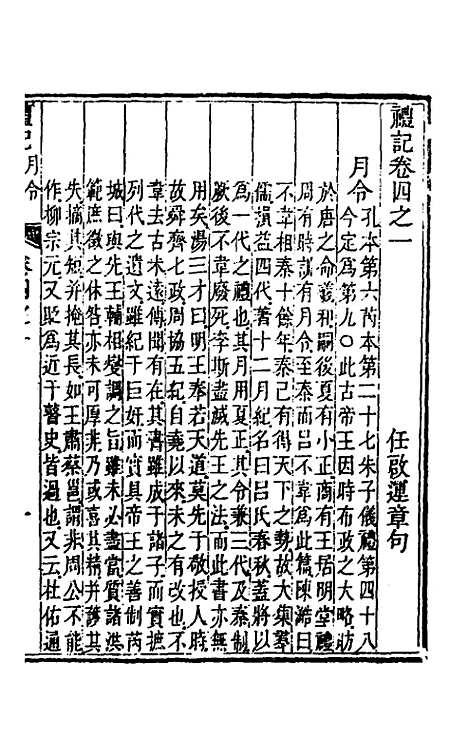 禮記卷四之一
任啟運章句
月令孔本第六芮本第二十七朱子儀禮第四十八
今定爲第九○此古帝王因時布政之大略昉
於唐之命羲和嗣後夏有小正商有王居明堂禮
周有時訓有月令至秦而呂不韋爲此篇陳澔曰
不韋相秦十餘年秦已有得天下之勢故大集羣
儒損益四代著十二月紀名曰呂氏春秋蓋將以
爲一代之禮也其月用夏正其令兼三代及秦制
厥後不韋廢死李斯盡滅先王之法而此書亦無
用矣湯三才曰明王奉若天道莫先于敬授人時
故舜齊七政周協五紀自堯以來未之有改也不
韋去古未遠傳聞有在其書雖成于諸子而實摭
列代之遺文雖紀于巨奸而實具帝王之善制芮
城曰與先王輔相燮調之旨雖未必盡當質諸洪
範庶徵之休咎亦未可厚非乃或喜其精并謗其
失摘其短并掩其長如王肅蔡邕謂非周公不能
作柳宗元又貶爲近于瞽史皆過也又云杜佑通
禮記月令
卷四之一
一